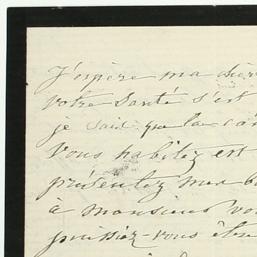 J'espère ma chère
votre santé s'est
je sais que la
vous habitez est
présentez mes
à monsieur vo
puissiez-vous être